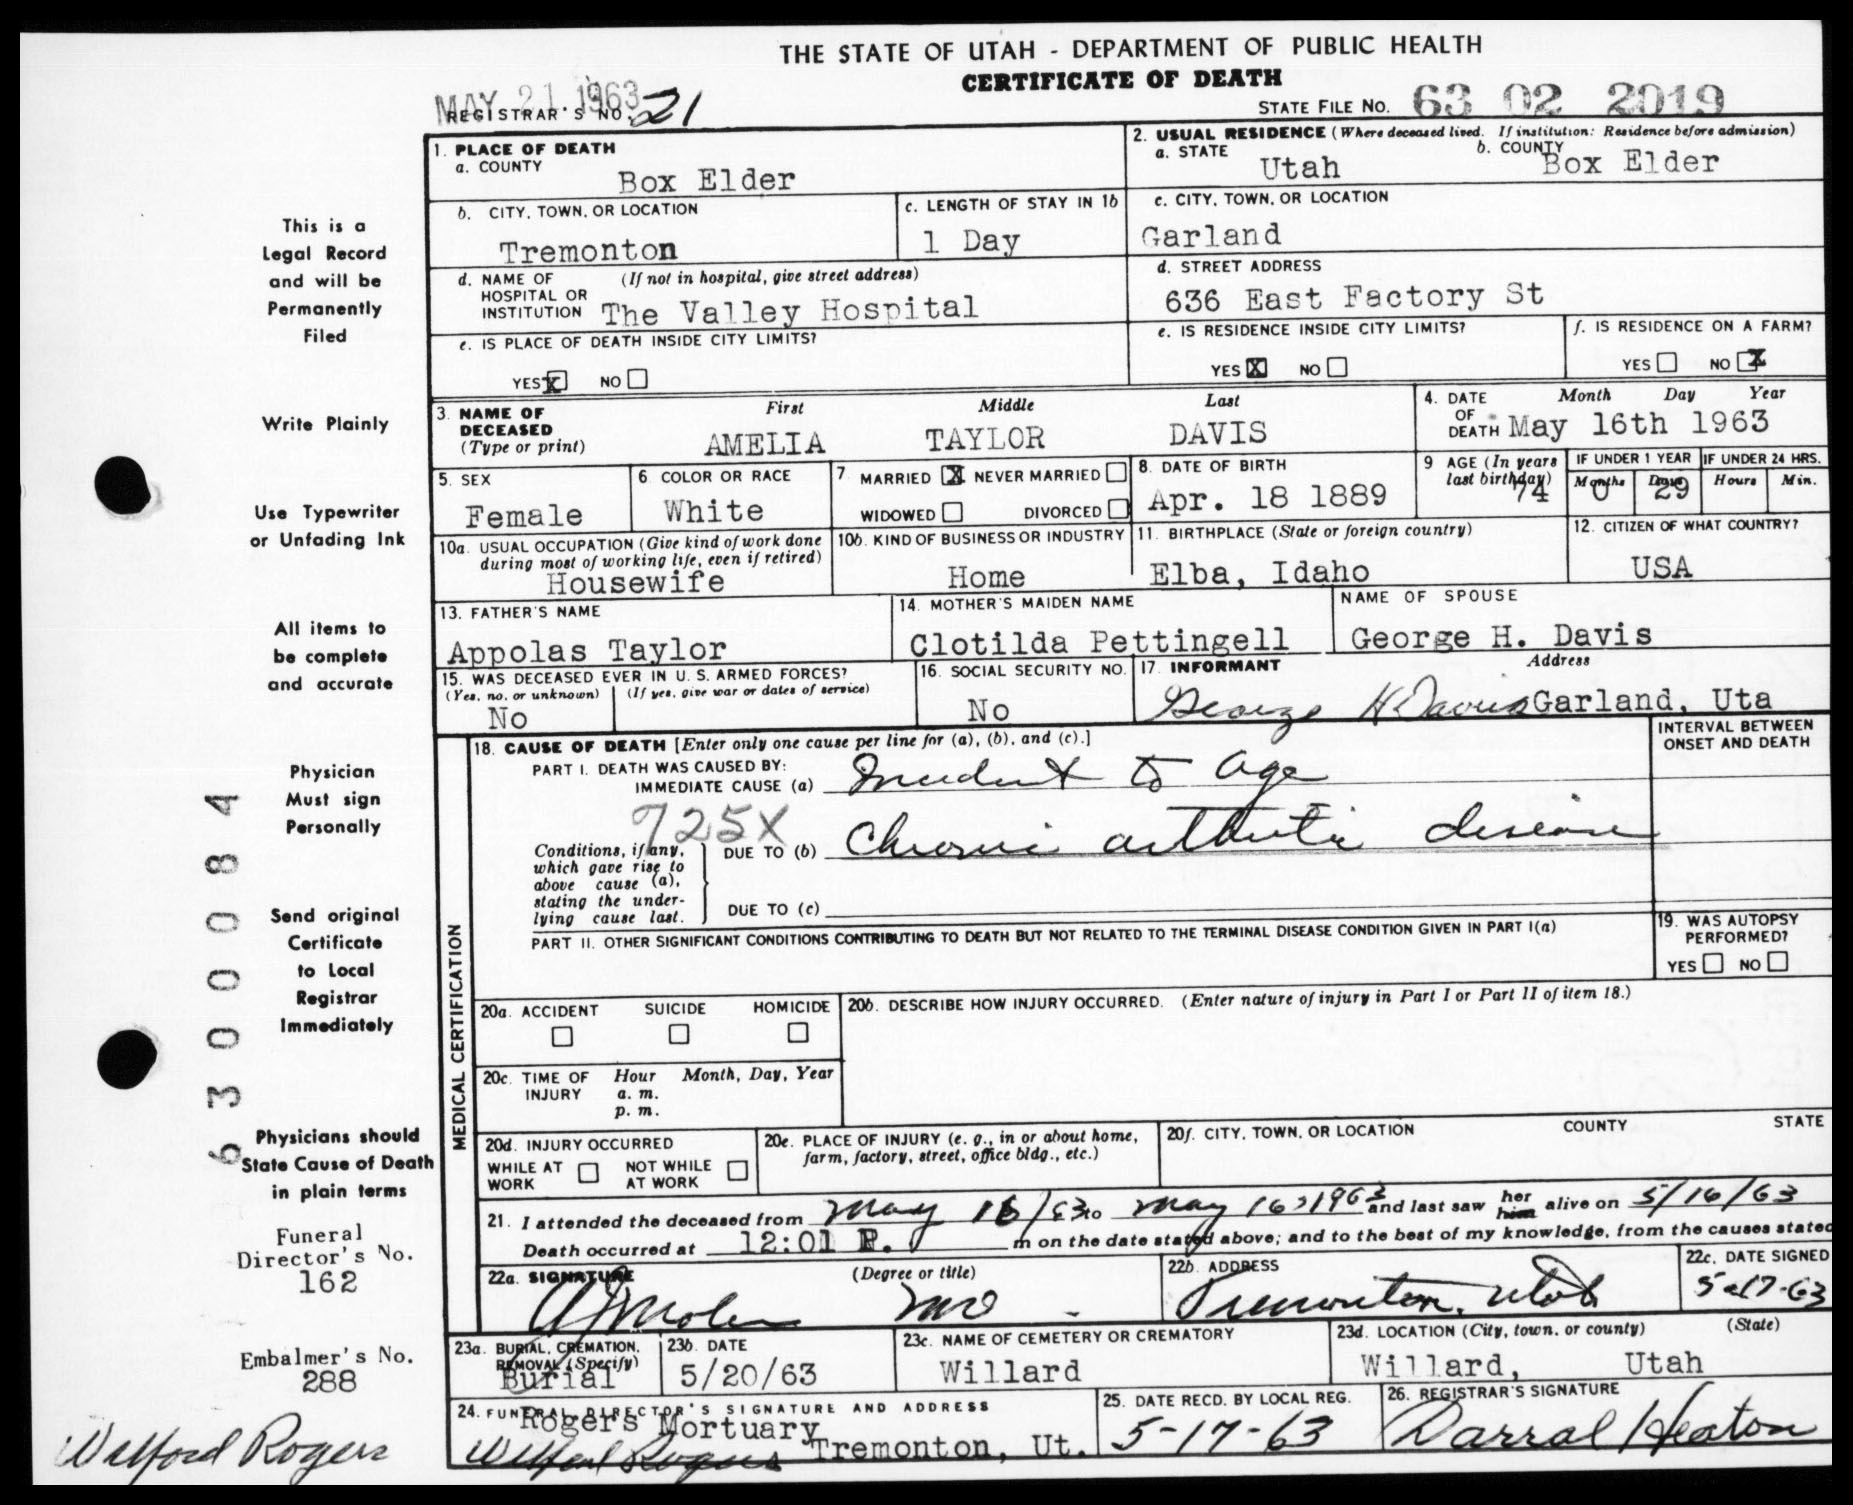 THE STATE OF UTAH - DEPARTMENT OF PUBLIC HEALTH
CERTIFICATE OF DEATH
MAY 21 1963
REGISTRAR'S NO. 21
STATE FILE NO. 63 02 2019
1. PLACE OF DEATH
a. COUNTY
Box Elder
2. USUAL RESIDENCE (Where deceased lived. If institution: Residence before admission)
a. STATE
Utah
b. COUNTY
Box Elder
b. CITY, TOWN, OR LOCATION
Tremonton
c. LENGTH OF STAY IN 1b
1 Day
c. CITY, TOWN, OR LOCATION
Garland
d. NAME OF HOSPITAL OR INSTITUTION
(If not in hospital, give street address)
The Valley Hospital
d. STREET ADDRESS
636 East Factory St
e. IS PLACE OF DEATH INSIDE CITY LIMITS?
YES X NO
e. IS RESIDENCE INSIDE CITY LIMITS?
YES X NO
f. IS RESIDENCE ON A FARM?
YES NO X
3. NAME OF DECEASED (Type or print)
First Middle Last
AMELIA TAYLOR DAVIS
4. DATE OF DEATH
Month Day Year
May 16th 1963
5. SEX
Female
6. COLOR OR RACE
White
7. MARRIED X NEVER MARRIED
WIDOWED DIVORCED
8. DATE OF BIRTH
Apr. 18 1889
9. AGE (In years last birthday)
74
IF UNDER 1 YEAR
Months Days
0 29
IF UNDER 24 HRS.
Hours Min.
10a. USUAL OCCUPATION (Give kind of work done during most of working life, even if retired)
Housewife
10b. KIND OF BUSINESS OR INDUSTRY
Home
11. BIRTHPLACE (State or foreign country)
Elba, Idaho
12. CITIZEN OF WHAT COUNTRY?
USA
13. FATHER'S NAME
Appolas Taylor
14. MOTHER'S MAIDEN NAME
Clotilda Pettingell
NAME OF SPOUSE
George H. Davis
15. WAS DECEASED EVER IN U. S. ARMED FORCES?
(Yes, no, or unknown) (If yes, give war or dates of service)
No
16. SOCIAL SECURITY NO.
No
17. INFORMANT Address
George H Davis Garland, Uta
MEDICAL CERTIFICATION
18. CAUSE OF DEATH [Enter only one cause per line for (a), (b), and (c).]
INTERVAL BETWEEN ONSET AND DEATH
PART I. DEATH WAS CAUSED BY:
IMMEDIATE CAUSE (a) Incident to age
725X
Conditions, if any, which gave rise to above cause (a), stating the underlying cause last.
DUE TO (b) Chronic arthritic disease
DUE TO (c)
PART II. OTHER SIGNIFICANT CONDITIONS CONTRIBUTING TO DEATH BUT NOT RELATED TO THE TERMINAL DISEASE CONDITION GIVEN IN PART I(a)
19. WAS AUTOPSY PERFORMED?
YES NO
20a. ACCIDENT SUICIDE HOMICIDE
20b. DESCRIBE HOW INJURY OCCURRED. (Enter nature of injury in Part I or Part II of item 18.)
20c. TIME OF INJURY
Hour Month, Day, Year
a. m.
p. m.
20d. INJURY OCCURRED
WHILE AT WORK NOT WHILE AT WORK
20e. PLACE OF INJURY (e. g., in or about home, farm, factory, street, office bldg., etc.)
20f. CITY, TOWN, OR LOCATION COUNTY STATE
21. I attended the deceased from May 16/63 to May 16, 1963 and last saw her him alive on 5/16/63
Death occurred at 12:01 P. m on the date stated above; and to the best of my knowledge, from the causes stated
22a. SIGNATURE (Degree or title)
MD
22b. ADDRESS
Tremonton, Utah
22c. DATE SIGNED
5-17-63
23a. BURIAL, CREMATION, REMOVAL (Specify)
Burial
23b. DATE
5/20/63
23c. NAME OF CEMETERY OR CREMATORY
Willard
23d. LOCATION (City, town, or county) (State)
Willard, Utah
24. FUNERAL DIRECTOR'S SIGNATURE AND ADDRESS
Rogers Mortuary
Welford Rogers Tremonton, Ut.
25. DATE RECD. BY LOCAL REG.
5-17-63
26. REGISTRAR'S SIGNATURE
Darral Heaton
This is a
Legal Record
and will be
Permanently
Filed
Write Plainly
Use Typewriter
or Unfading Ink
All items to
be complete
and accurate
Physician
Must sign
Personally
Send original
Certificate
to Local
Registrar
Immediately
Physicians should
State Cause of Death
in plain terms
6300084
Funeral
Director's No.
162
Embalmer's No.
288
Welford Rogers